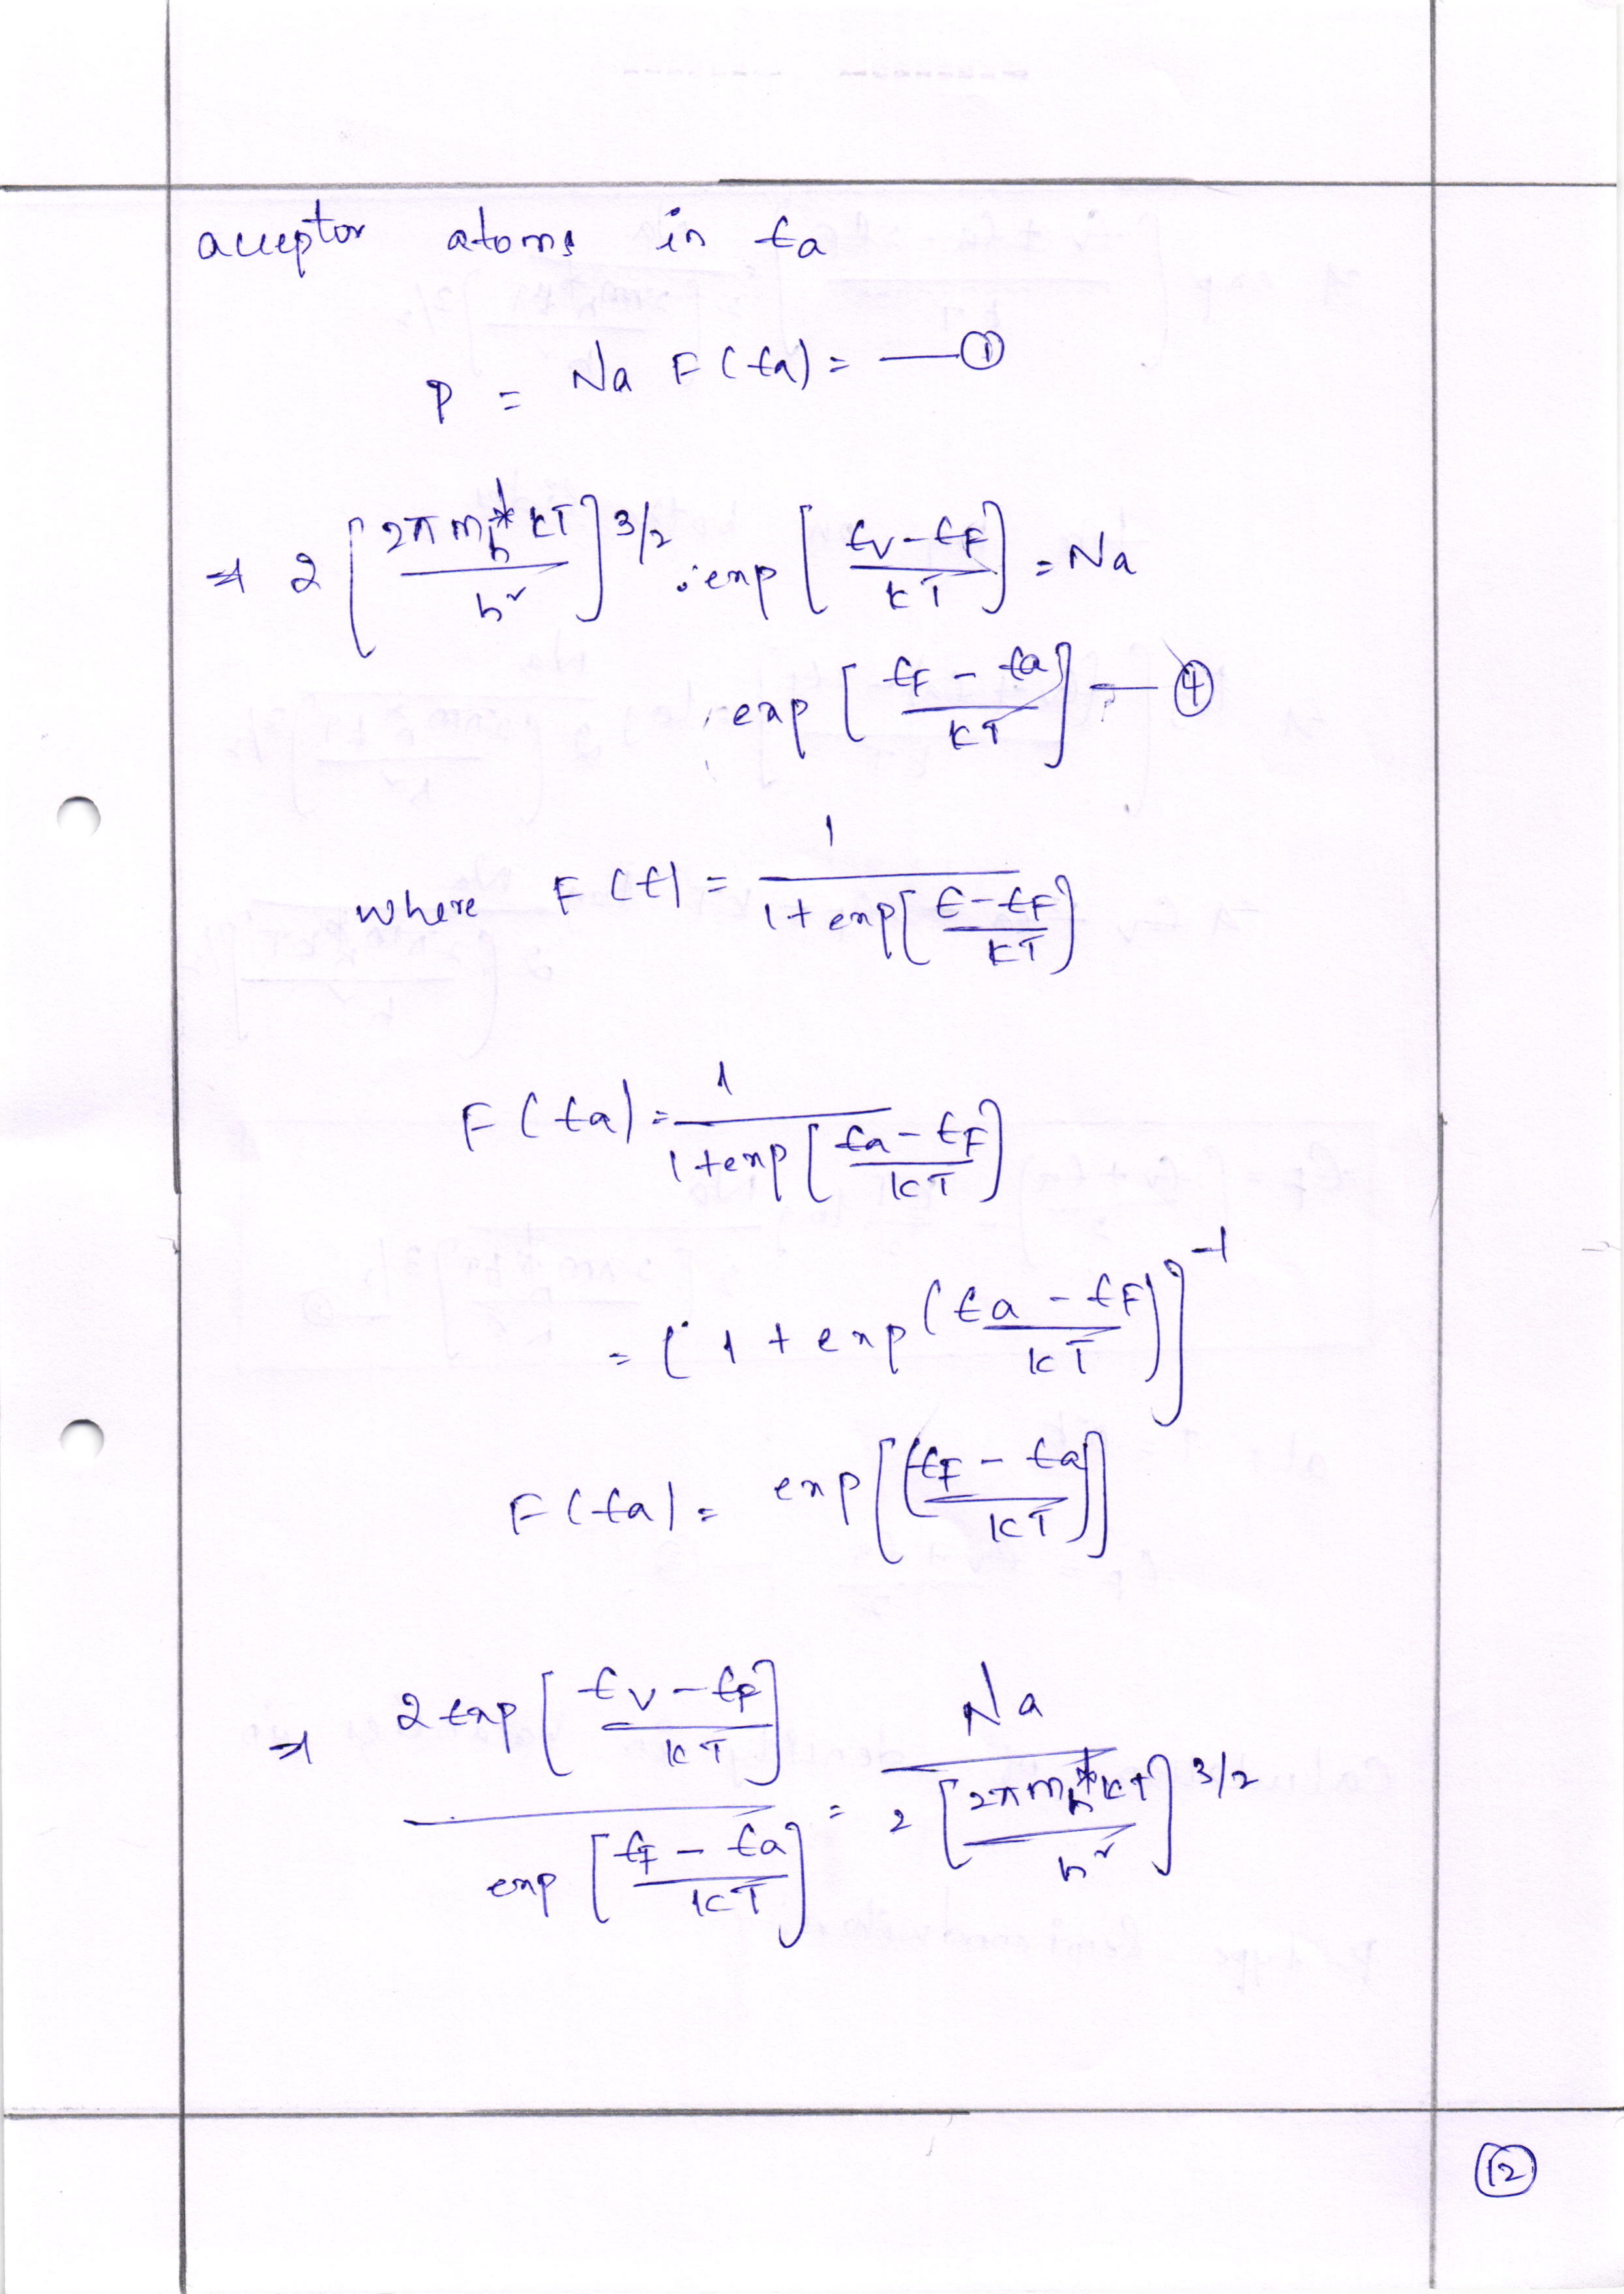 acceptor atoms in Ea
P = Na F(Ea) = — ①
⇒ 2 [2π m*h kT / h²]^3/2 . exp [Ev - EF / kT] = Na
. exp [EF - Ea / kT] — ④
where F(E) = 1 / 1 + exp[E - EF / kT]
F(Ea) = 1 / 1 + exp[Ea - EF / kT]
= [1 + exp(Ea - EF / kT)]^-1
F(Ea) = exp[(EF - Ea / kT)]
⇒ 2 exp[Ev - EF / kT] / exp[EF - Ea / kT] = Na / 2 [2π m*h kT / h²]^3/2
⑫